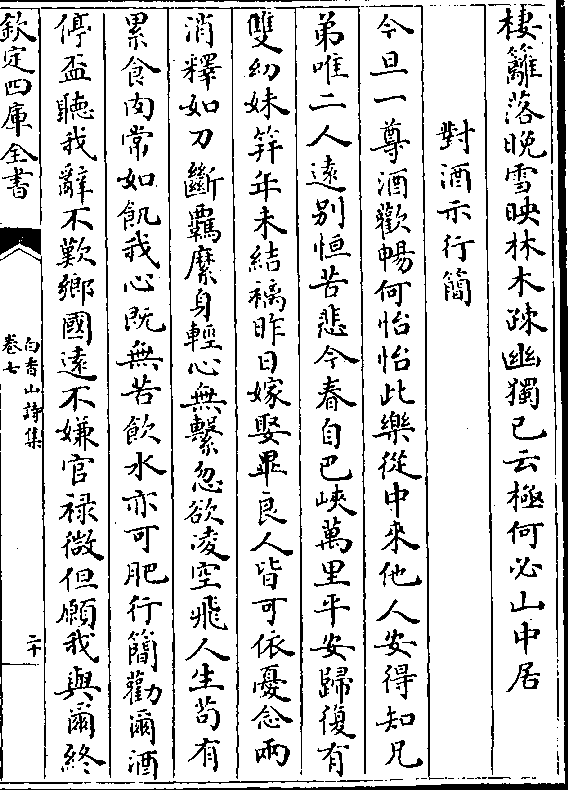 棲籬落晩雪映林木疎幽獨已云極何必山中居
對酒示行簡
今旦一尊酒歡暢何怡怡此樂從中來他人安得知凡
弟唯二人逺别恒苦悲今春自巴峽萬里平安歸復有
雙幼妹笄年未結褵昨日嫁娶畢良人皆可依憂念兩
消釋如刀斷羈縻身輕心無繫忽欲凌空飛人生茍有
累食肉常如飢我心既無苦飲水亦可肥行簡勸爾酒
停盃聽我辭不歎鄉國逺不嫌官禄微但願我與爾終
欽定四庫全書
白香山詩集
卷七
二十